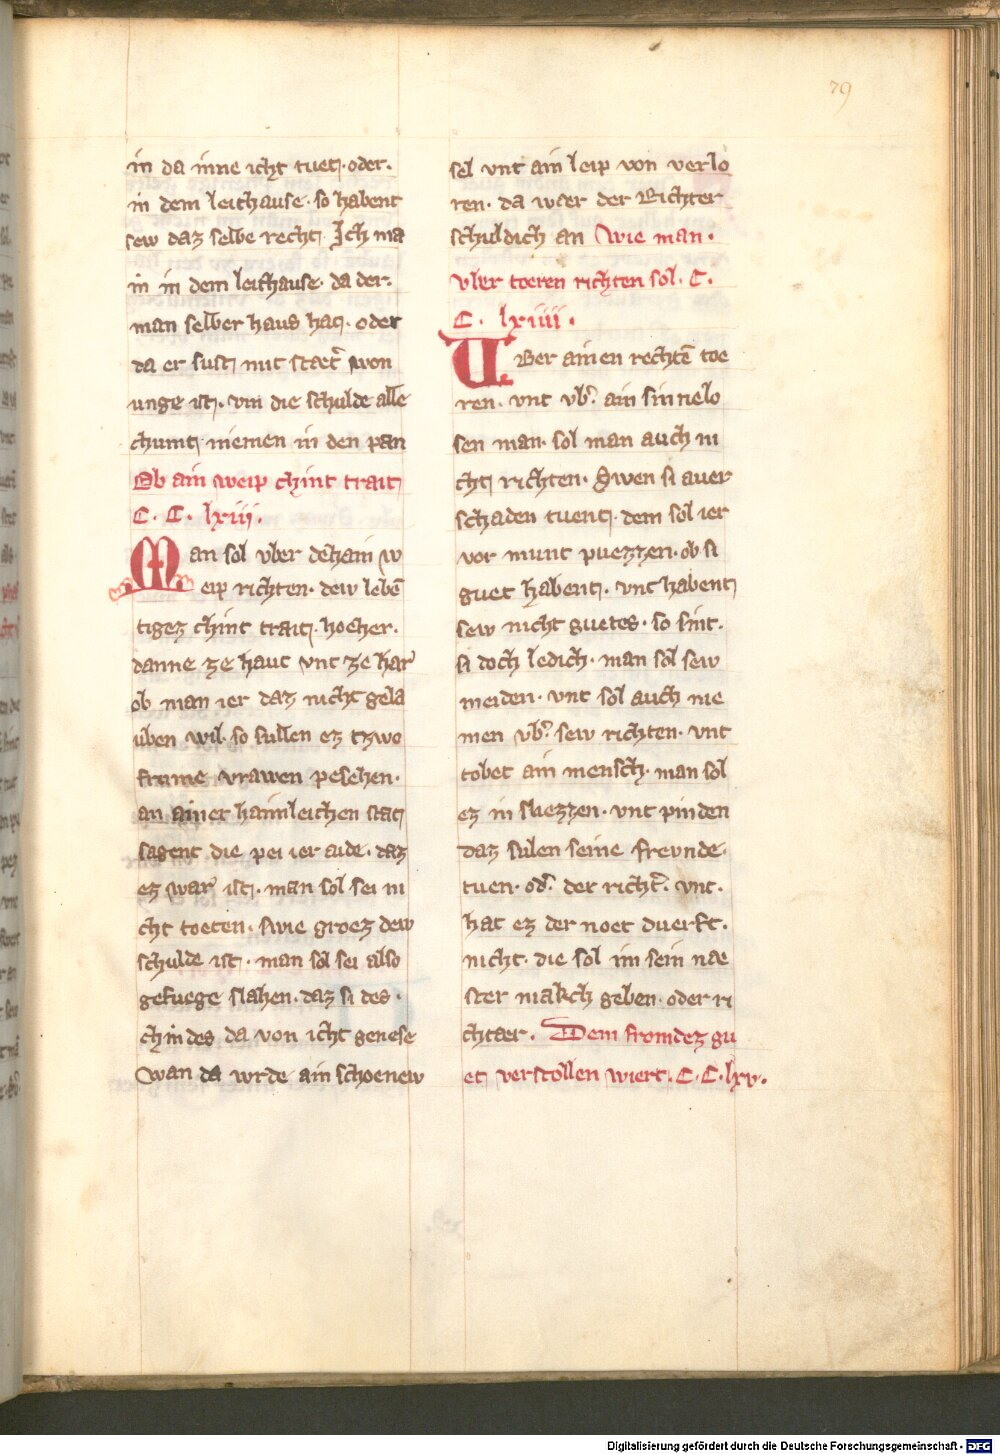 79
in da inne icht tuet. oder.
in dem leithause. so habent
sew daz selbe recht. Ich ma
in in dem leithause. da der.
man selber haus hat. oder
da er sust mit staet͛ won
unge ist. vm die schulde alle
chumt niemen in den pan
Ob ain weip chint trait
C. C. lxiii.
Man sol vber dehain w
eip richten. dew lebē
tigez chint trait. hoeher.
danne ze haut vnt ze har͛
ob man ier daz nicht gela
uben wil. so sullen ez tzwo
frume vrawen pesehen.
an ainer haimleichen stat
sagent die pei ier aide. daz
ez war͛ ist. man sol sei ni
cht toeten. swie groez dew
schulde ist. man sol sei also
gefuege slahen. daz si des.
chindes da von icht genese
wan da wrde ain schoenew
sel vnt ain leip von verlo
ren. da wer der Richter
schuldich an Wie man.
vber toeren richten sol. C.
C. lxiiii.
Uber ainen rechtē toe
ren. vnt vb͛ ain sinnelo
sen man. sol man auch ni
cht richten. Swen si aver
schaden tuent. dem sol ier
vor munt puezzen. ob si
guet habent. vnt habent
sew nicht guetes. so sint.
si doch ledich. man sol sew
meiden. vnt sol auch nie
men vb͛ sew richten. vnt
tobet ain mensch. man sol
ez in sliezzen. vnt pinden
daz sulen seine frevnde.
tuen. od͛ der richt͛. vnt.
hat ez der noet duerft.
nicht. die sol im sein nae
ster makch geben. oder ri
chtaer. Dem fromdez gu
et verstollen wiert. C. C. lxv.
Digitalisierung gefördert durch die Deutsche Forschungsgemeinschaft - DFG